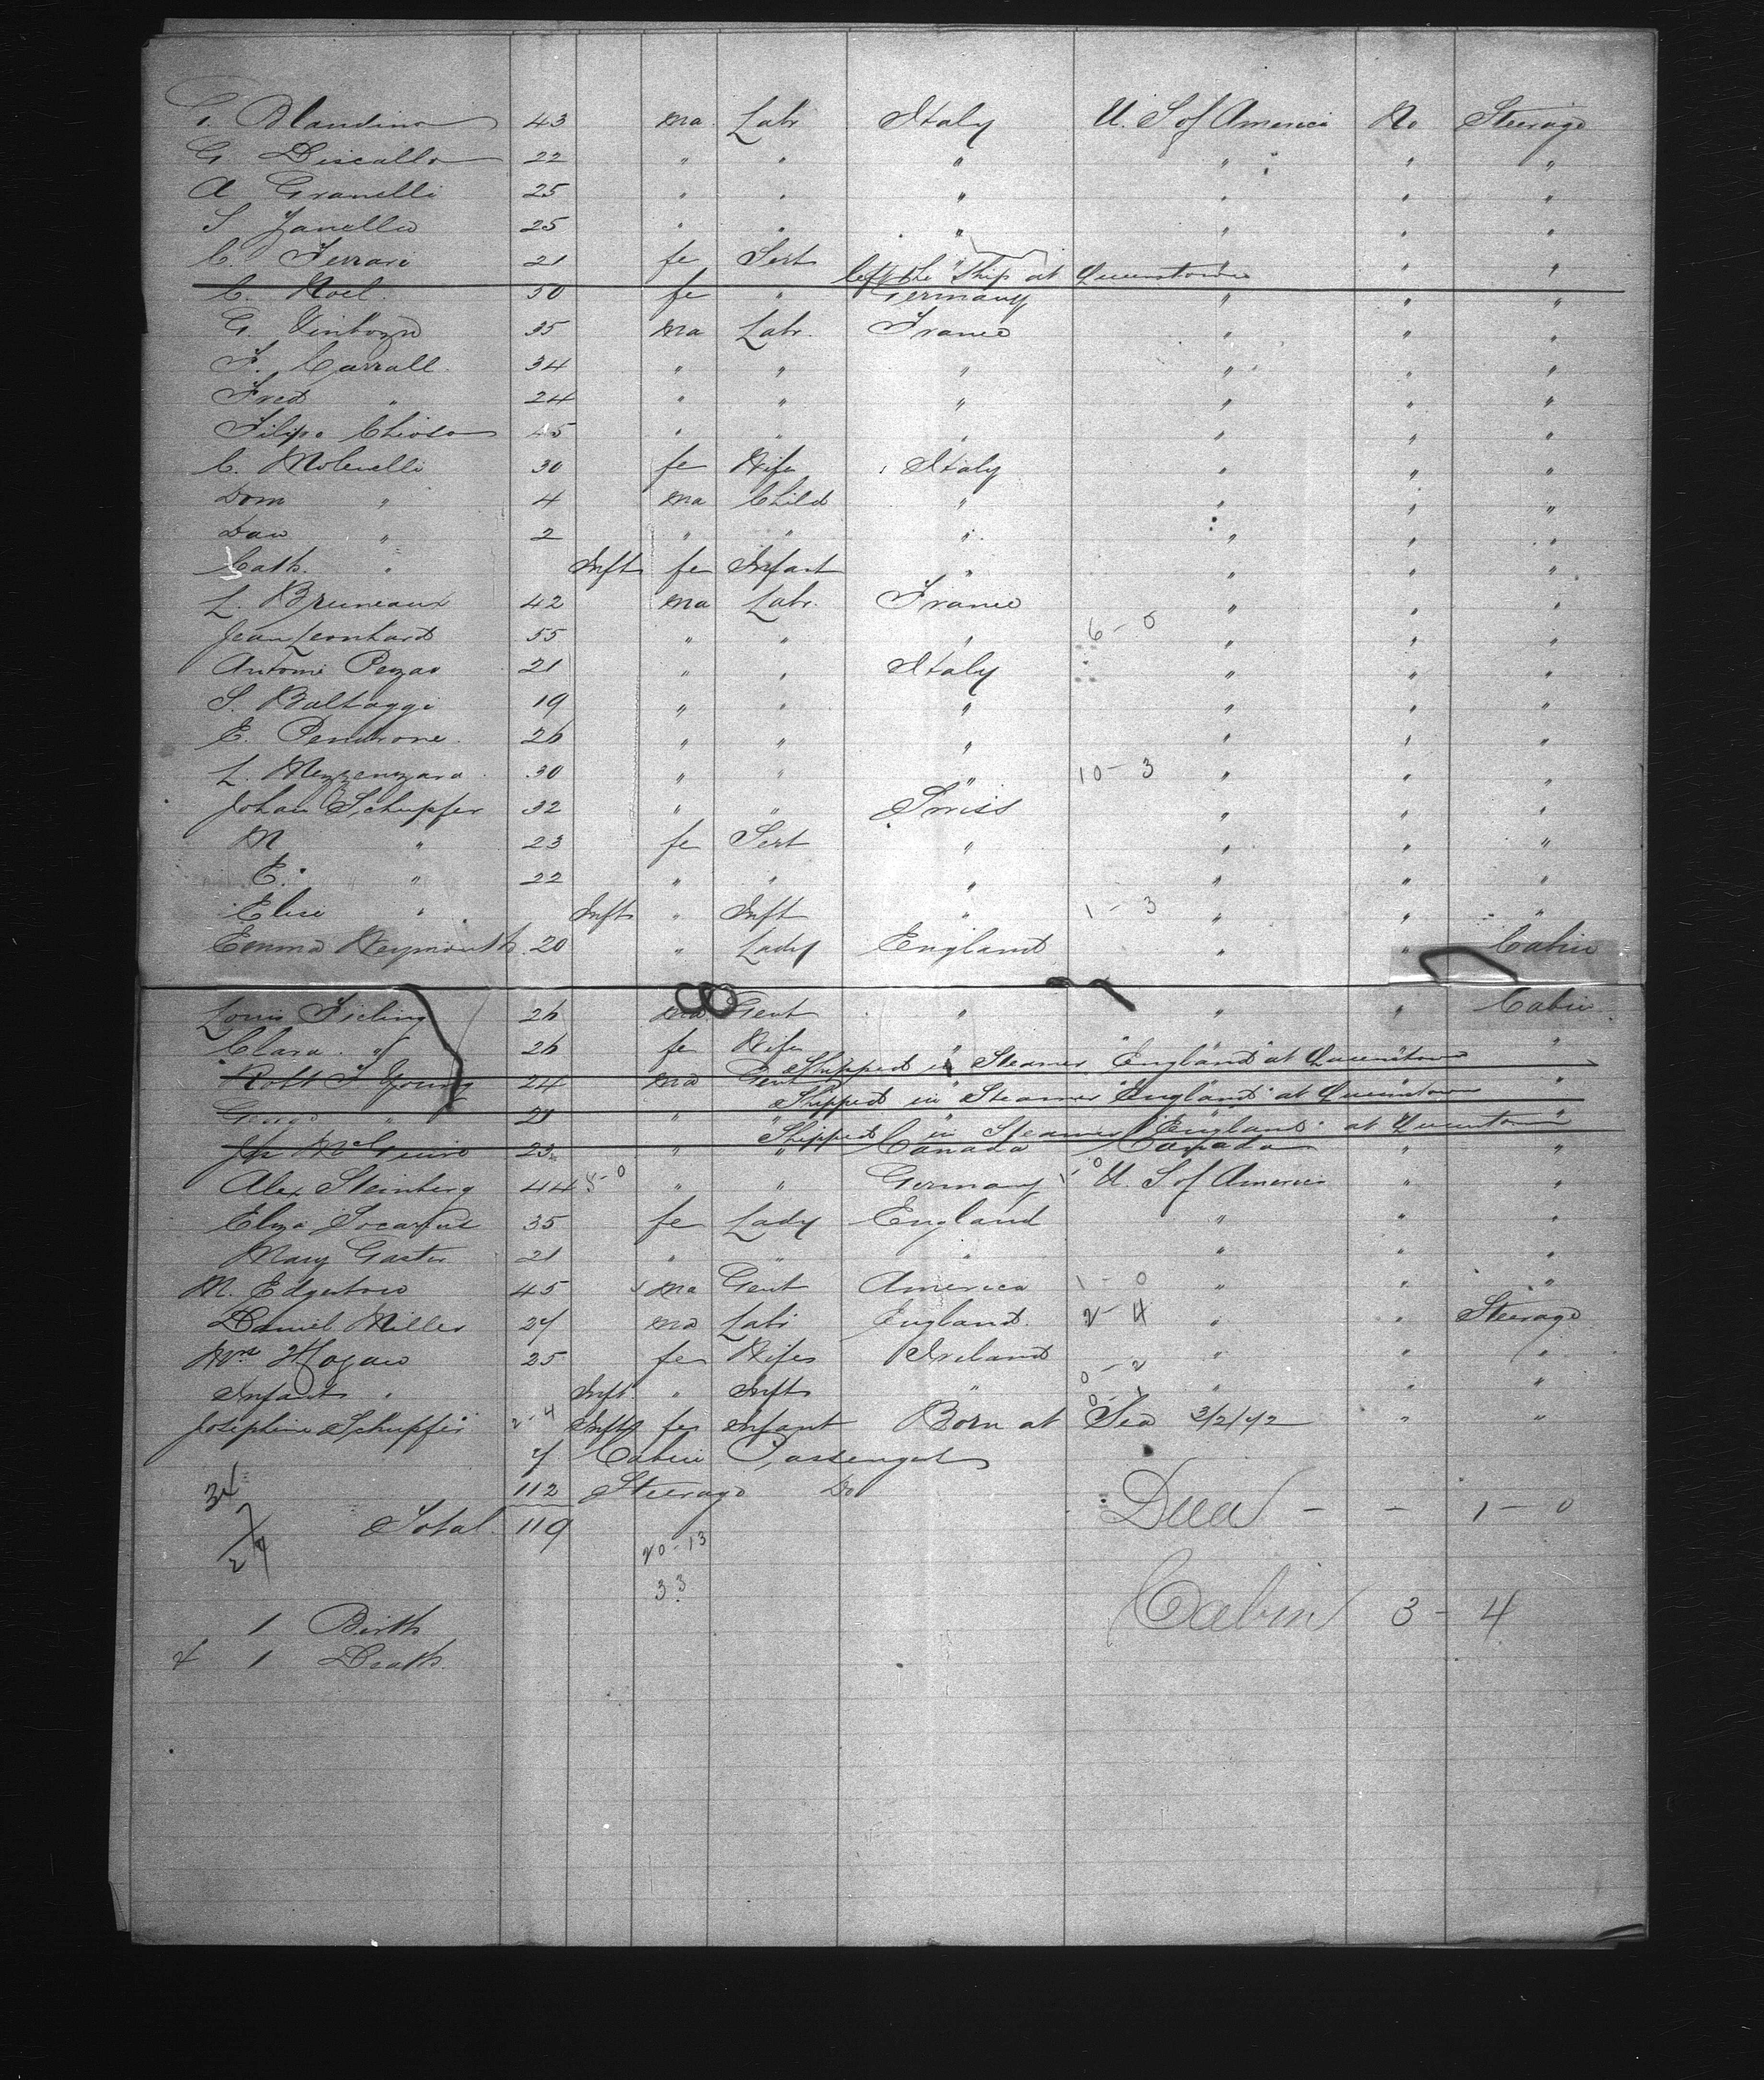 G. Blandino 43 ma Labr Italy U. S of America No Steerage
G. Discallo 22 " " " " " "
A Granelli 25 " " " " " "
S Zanello 25 " " " " " "
C. Ferrari 21 fe Sert " " " "
left the Ship at Queenstown
C. Noel. 50 fe " Germany " " "
G. 35 ma Labr. France " " "
F. Carrall. 34 " " " " " "
Fred " 24 " " " " " "
Filipo Chiosa 45 " " " " " "
C. Molenelli 30 fe Wife Italy " " "
Dom " 4 ma Child " " " "
Dan " 2 " " " " " "
Cath. " Inft fe Infant " " " "
L. Bruneaux 42 ma Labr. France " " "
Jean Leonhard 55 " " " 6 - 0 " " "
Antoni 21 " " Italy " " "
S. Baltaggi 19 " " " " " "
E. Pendrone. 26 " " " " " "
L. 30 " " " 10 - 3 " " "
Johan Schupfer 32 " " Swiss " " "
M " 23 fe Sert " " " "
E. " 22 " " " " " "
Elise " Inft " Inft " 1 - 3 " " "
Emma Weymouth. 20 " Lady England " " Cabin
Louis Fieling 26 ma Gent " " " Cabin
Clara. " 26 fe Wife " " " "
Shipped in Steamer "England" at Queenstown
Robt F Young 24 ma Gent
Shipped in Steamer "England" at Queenstown
George " 21 " "
Shipped in Steamer "England" at Queenstown
Js McGuire 23 " " Canada Canada " "
Alex Steinberg 44 5-0 " " Germany 1-0 U. S of America " "
Eliza 35 fe Lady England " " "
Mary Gaster 21 " " " " " "
M. Edgerton 45 ma Gent America 1 - 0 " " "
Daniel Miller 27 ma Labr England. 2 - 4 " " Steerage
Mrs Hogan 25 fe Wife Ireland 0 - 2 " " "
Infant " Inft. " Inft " 0 - 1 " " "
Josephine Schupfer 2-4 Inft fe Infant Born at Sea 3/2/72 " "
7 Cabin Passengers
112 Steerage Do
Dead - - 1 - 0
Total 119
20-13
33
Cabin 3 - 4
1 Birth
1 Death.